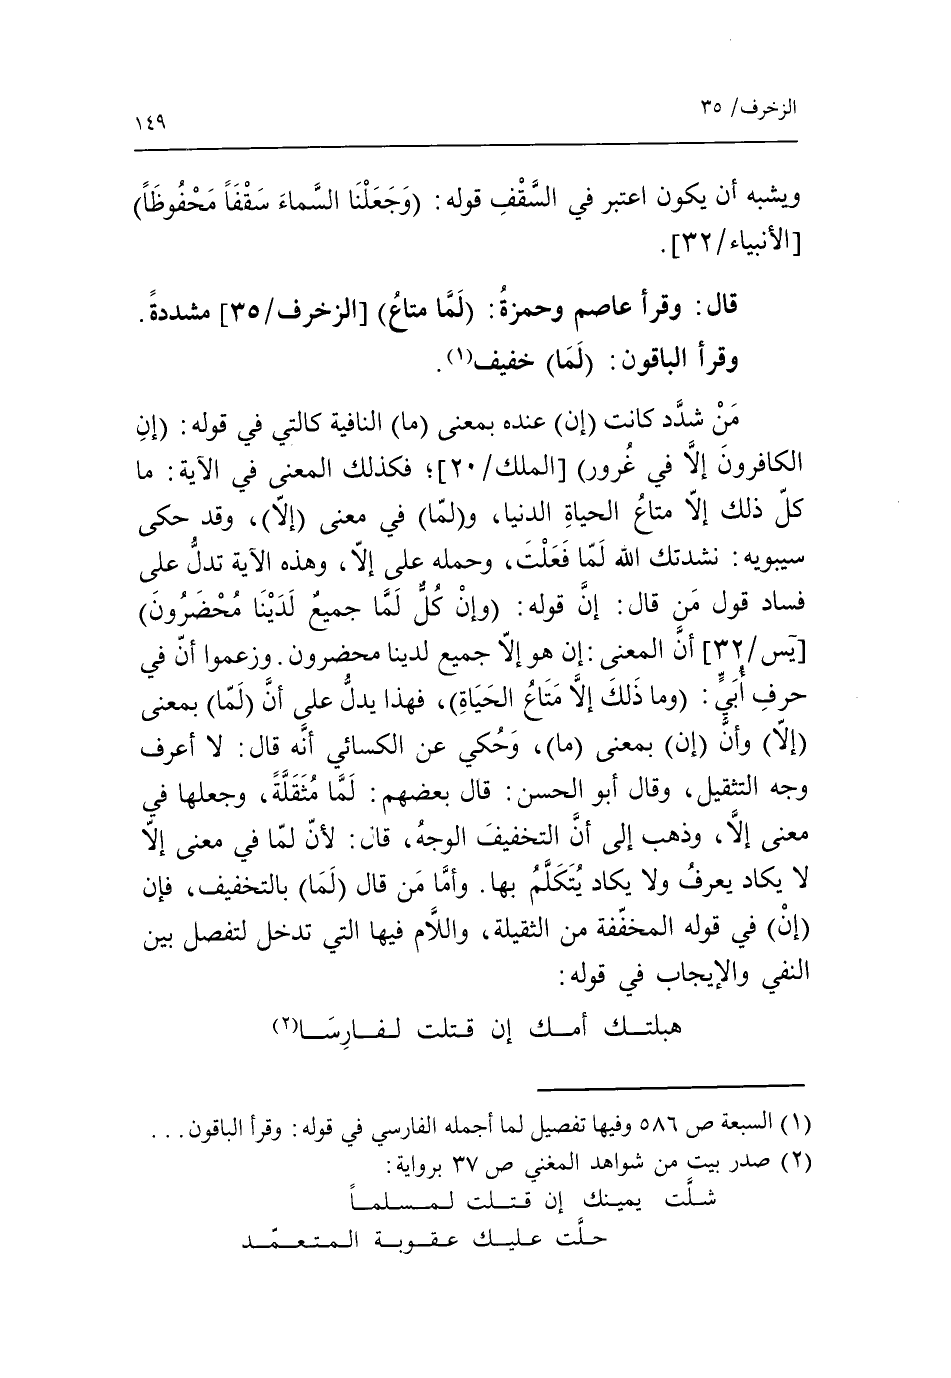 الزخرف/ ٣٥
١٤٩
ويشبه أن يكون اعتبر في السَّقْفِ قوله: (وَجَعَلْنَا السَّماءَ سَقْفَاً مَحْفُوظَاً)
[الأنبياء/٣٢].
قال: وقرأ عاصم وحمزةُ: (لَمَّا متاعُ) [الزخرف/٣٥] مشددةً.
وقرأ الباقون: (لَمَا) خفيف(١).
مَنْ شدَّد كانت (إن) عنده بمعنى (ما) النافية كالتي في قوله: (إنِ
الكافرونَ إلَّا في غُرور) [الملك/٢٠]؛ فكذلك المعنى في الآية: ما
كلّ ذلك إلّا متاعُ الحياةِ الدنيا، و(لمّا) في معنى (إلّا)، وقد حكى
سيبويه: نشدتك الله لَمّا فَعَلْتَ، وحمله على إلّا، وهذه الآية تدلُّ على
فساد قول مَن قال: إنَّ قوله: (وإنْ كُلٌّ لَمَّا جميعٌ لَدَيْنَا مُحْضَرُونَ)
[يَس/٣٢] أنَّ المعنى: إن هو إلّا جميع لدينا محضرون. وزعموا أنّ في
حرفِ أُبَيٍّ: (وما ذَلكَ إلَّا مَتَاعُ الحَيَاةِ)، فهذا يدلُّ على أنَّ (لَمّا) بمعنى
(إلّا) وأنَّ (إن) بمعنى (ما)، وَحُكي عن الكسائي أنَّه قال: لا أعرف
وجه التثقيل، وقال أبو الحسن: قال بعضهم: لَمَّا مُثَقَلَّةً، وجعلها في
معنى إلَّا، وذهب إلى أنَّ التخفيفَ الوجهُ، قال: لأنّ لمّا في معنى إلّا
لا يكاد يعرفُ ولا يكاد يُتَكَلَّمُ بها. وأمَّا مَن قال (لَمَا) بالتخفيف، فإن
(إنْ) في قوله المخفّفة من الثقيلة، واللَّام فيها التي تدخل لتفصل بين
النفي والإيجاب في قوله:
هبلتـك أمـك إن قـتلت لـفـارِسَـا(٢)
(١) السبعة ص ٥٨٦ وفيها تفصيل لما أجمله الفارسي في قوله: وقرأ الباقون...
(٢) صدر بيت من شواهد المغني ص ٣٧ برواية:
شـلَّت يمينك إن قـتـلت لـمـسـلمـاً
حلَّت عليك عقـوبـة المـتعـمّـد